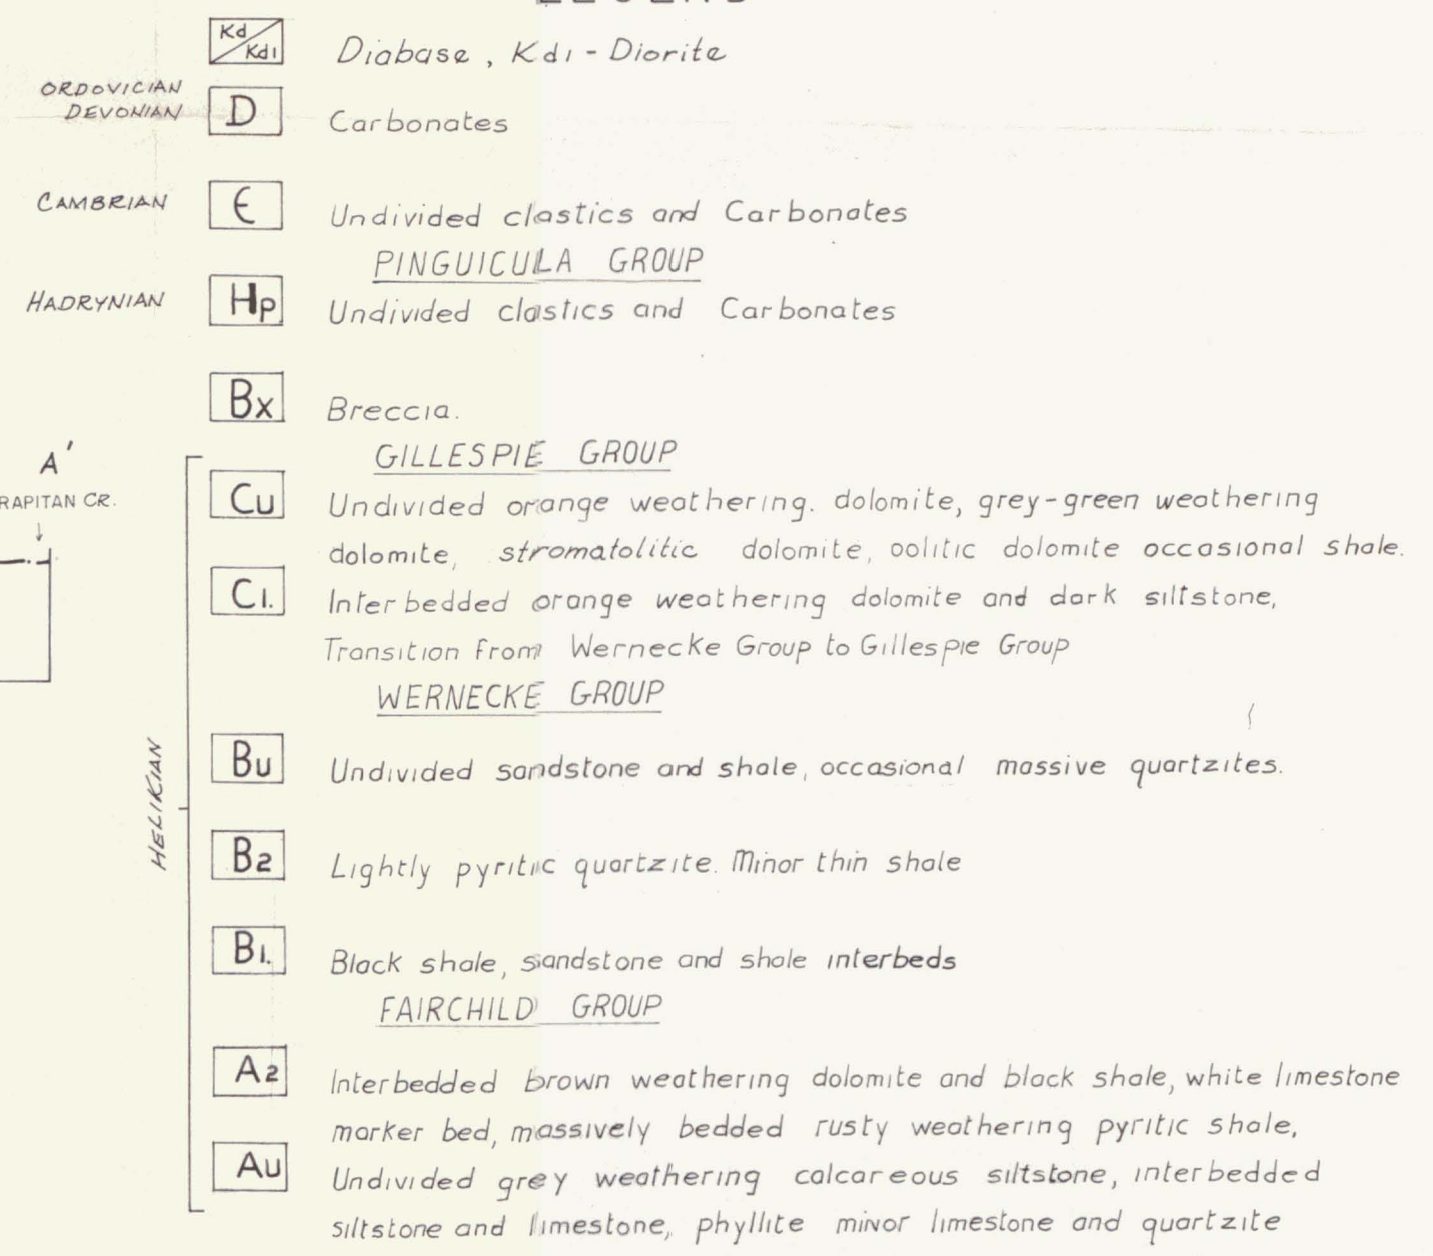 LEGEND
Kd/Kd1 Diabase, Kd1 - Diorite
ORDOVICIAN
DEVONIAN D Carbonates
CAMBRIAN Є Undivided clastics and Carbonates
PINGUICULA GROUP
HADRYNIAN Hp Undivided clastics and Carbonates
Bx Breccia.
GILLESPIE GROUP
A'
RAPITAN CR.
Cu Undivided orange weathering. dolomite, grey-green weathering
dolomite, stromatolitic dolomite, oolitic dolomite occasional shale.
C1. Interbedded orange weathering dolomite and dark siltstone,
Transition from Wernecke Group to Gillespie Group
WERNECKE GROUP
HELIKIAN
Bu Undivided sandstone and shale, occasional massive quartzites.
B2 Lightly pyritic quartzite. Minor thin shale
B1. Black shale, sandstone and shale interbeds
FAIRCHILD GROUP
A2 Interbedded brown weathering dolomite and black shale, white limestone
marker bed, massively bedded rusty weathering pyritic shale,
Au Undivided grey weathering calcareous siltstone, interbedded
siltstone and limestone, phyllite minor limestone and quartzite